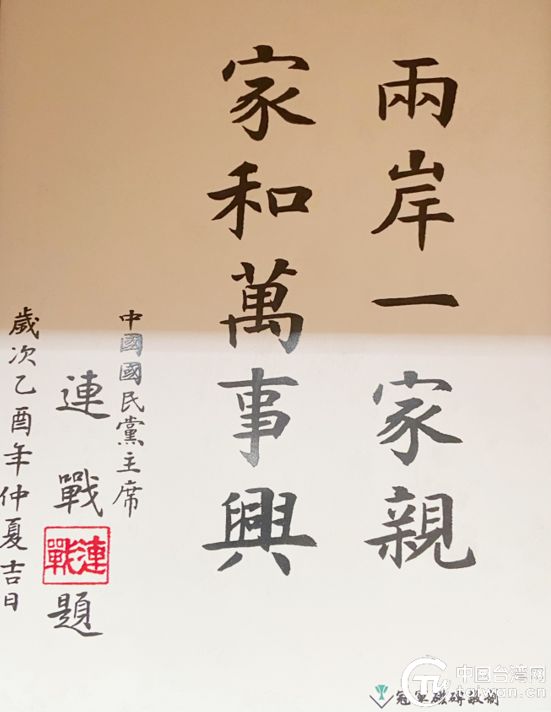 兩岸一家親
家和萬事興
中國國民黨主席
連戰題
連戰
歲次乙酉年仲夏吉日
冠軍磁磚敬制
中国台湾网
taiwan.cn